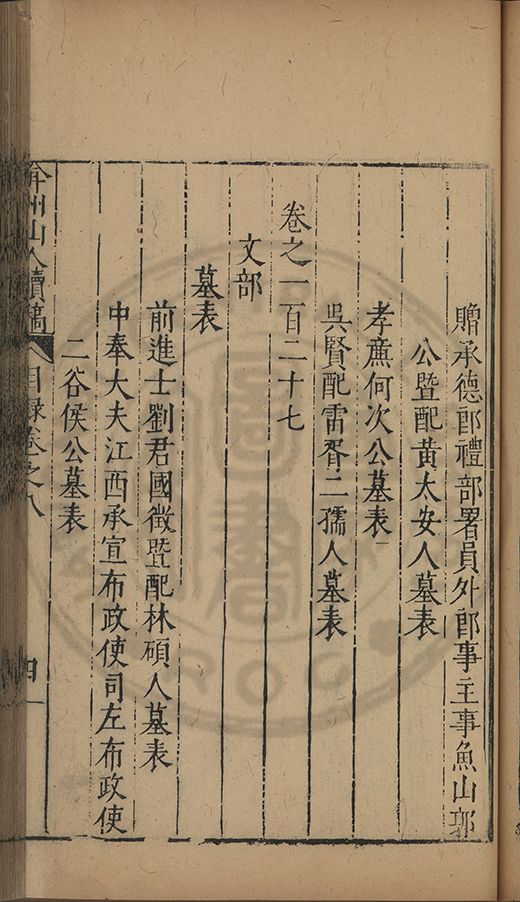 贈承德郎禮部署員外郎事主事魚山郭
公暨配黃太安人墓表
孝廉何次公墓表
吳賢配雷胥二孺人墓表
卷之一百二十七
文部
墓表
前進士劉君國徵暨配林碩人墓表
中奉大夫江西承宣布政使司左布政使
二谷侯公墓表
弇州山人續稿 目錄卷之八 四